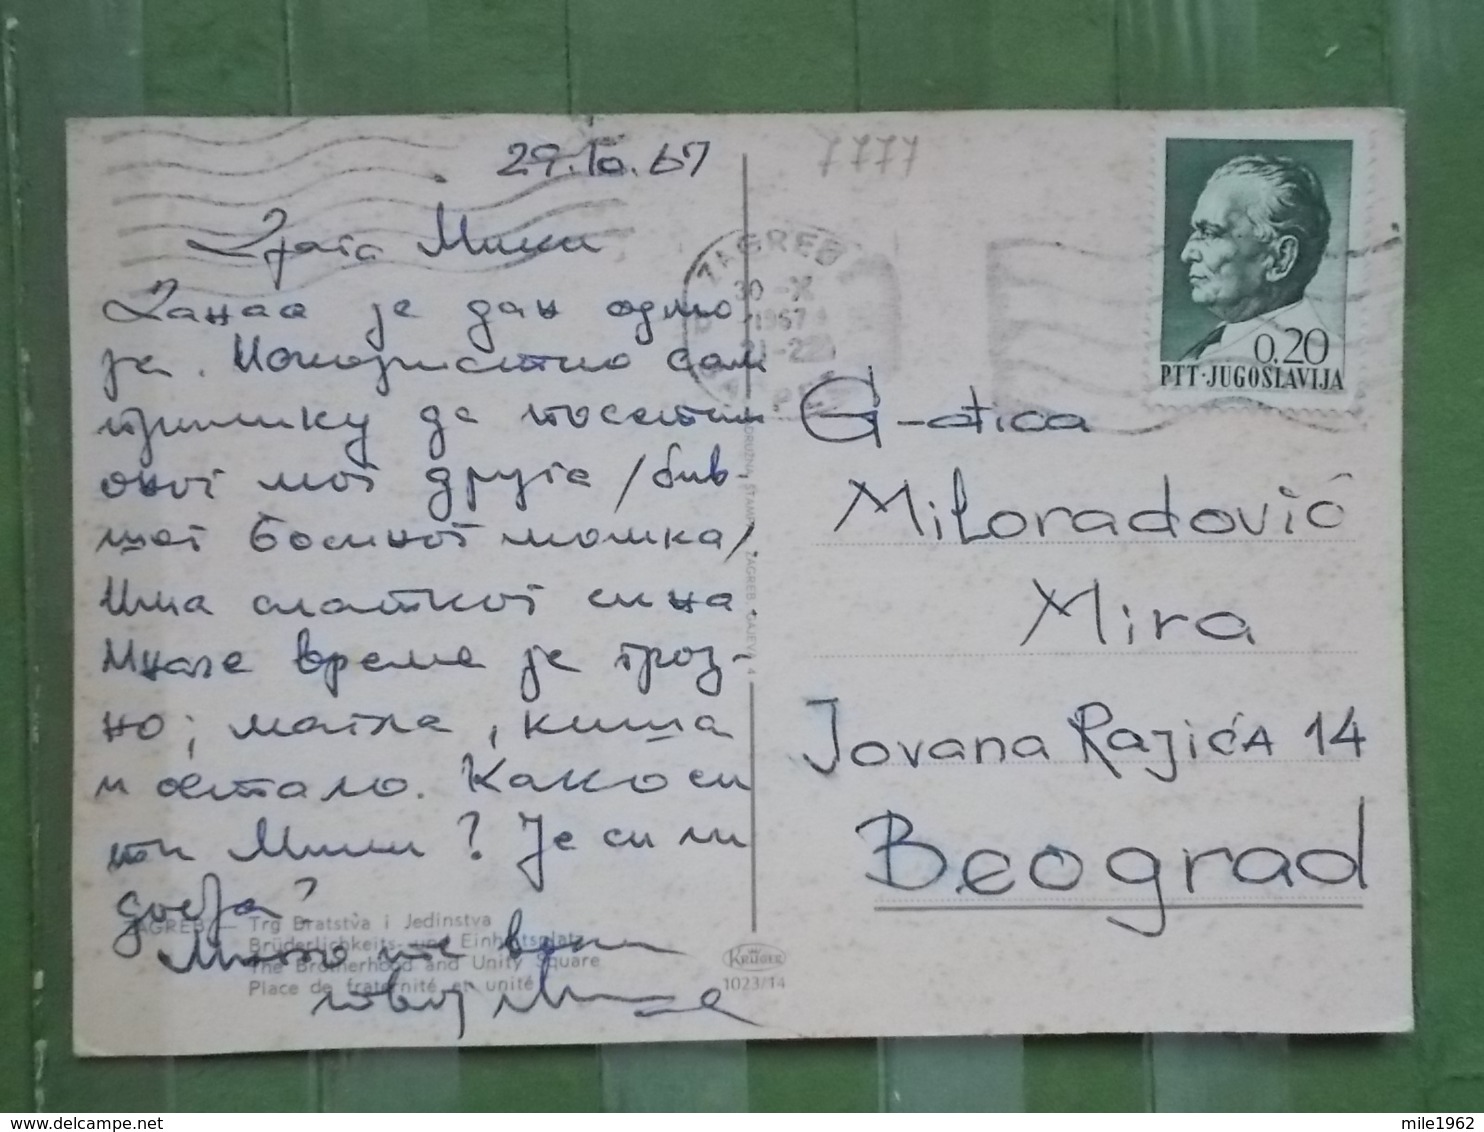 29.10.67
7777
Драга Мики
Данас је дан одмо
ра. Искористио сам
прилику да посетим
оног мог друга / бив
шег босиног момка /
Има слатког сина.
Иначе време је гроз-
но; магла, киша
и остало. Како си
ти Мики? Је си ли
добра?
Много те воли
твој
ZAGREB — Trg Bratstva i Jedinstva
Brüderlichkeits- und Einheitsplatz
The Brotherhood and Unity Square
Place de fraternité et unité
KRÜGER
1023/14
ZAGREB, GAJEVA 4
ZAGREB
30 -X
1967
21-22
0.20
PTT·JUGOSLAVIJA
G-đica
Miloradović
Mira
Jovana Rajića 14
Beograd
mile1962